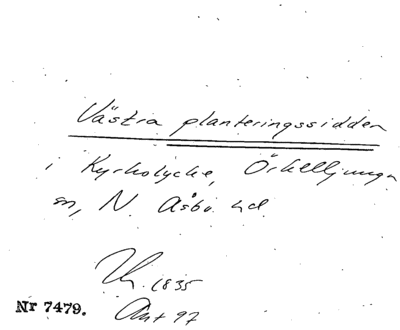 Västra planteringssidden
i Kyrkolycke, Örkelljunga
sn, N. Åsbo hd.
1835
Nr 7479. Akt 97